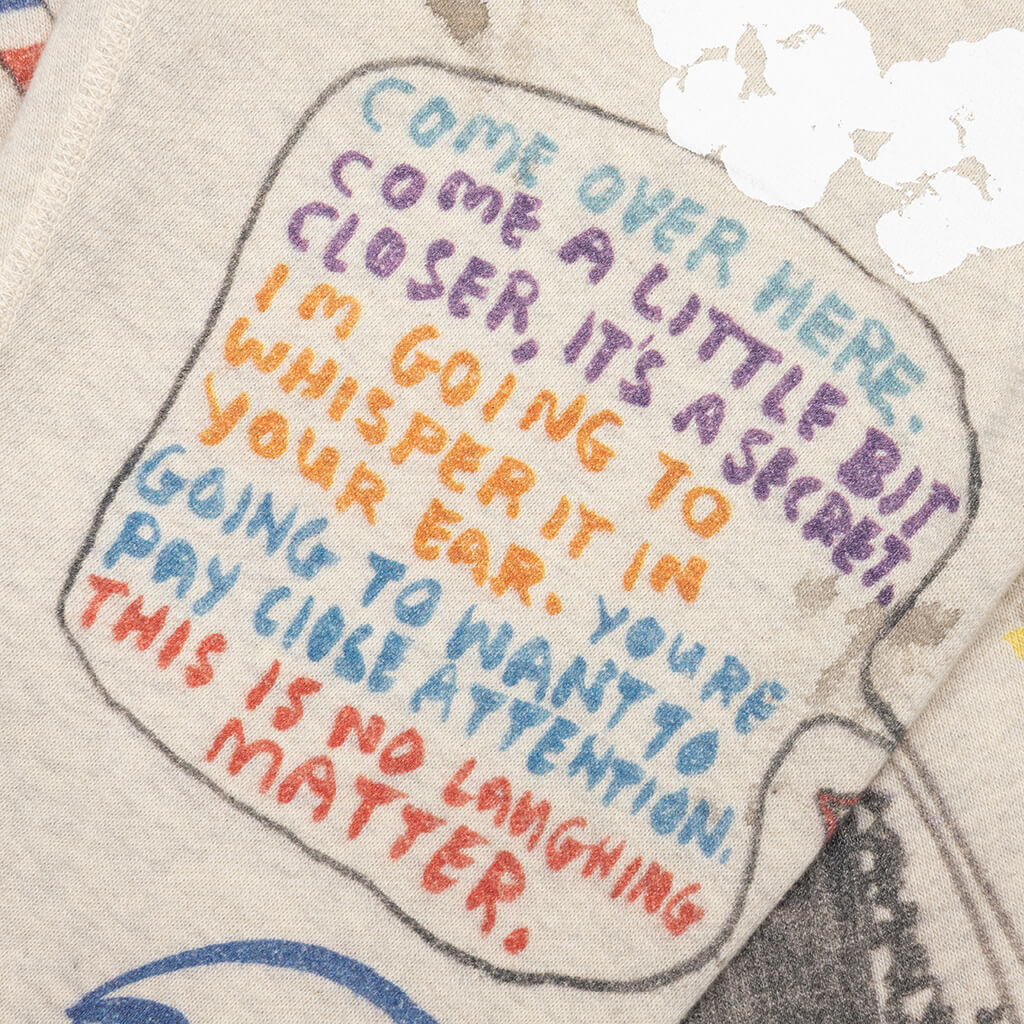 COME OVER HERE.
COME A LITTLE BIT
CLOSER, IT'S A SECRET.
I M GOING TO
WHISPER IT IN
YOUR EAR. YOURE
GOING TO WANT TO
PAY CLOSE ATTENTION.
THIS IS NO LAUGHING
MATTER.